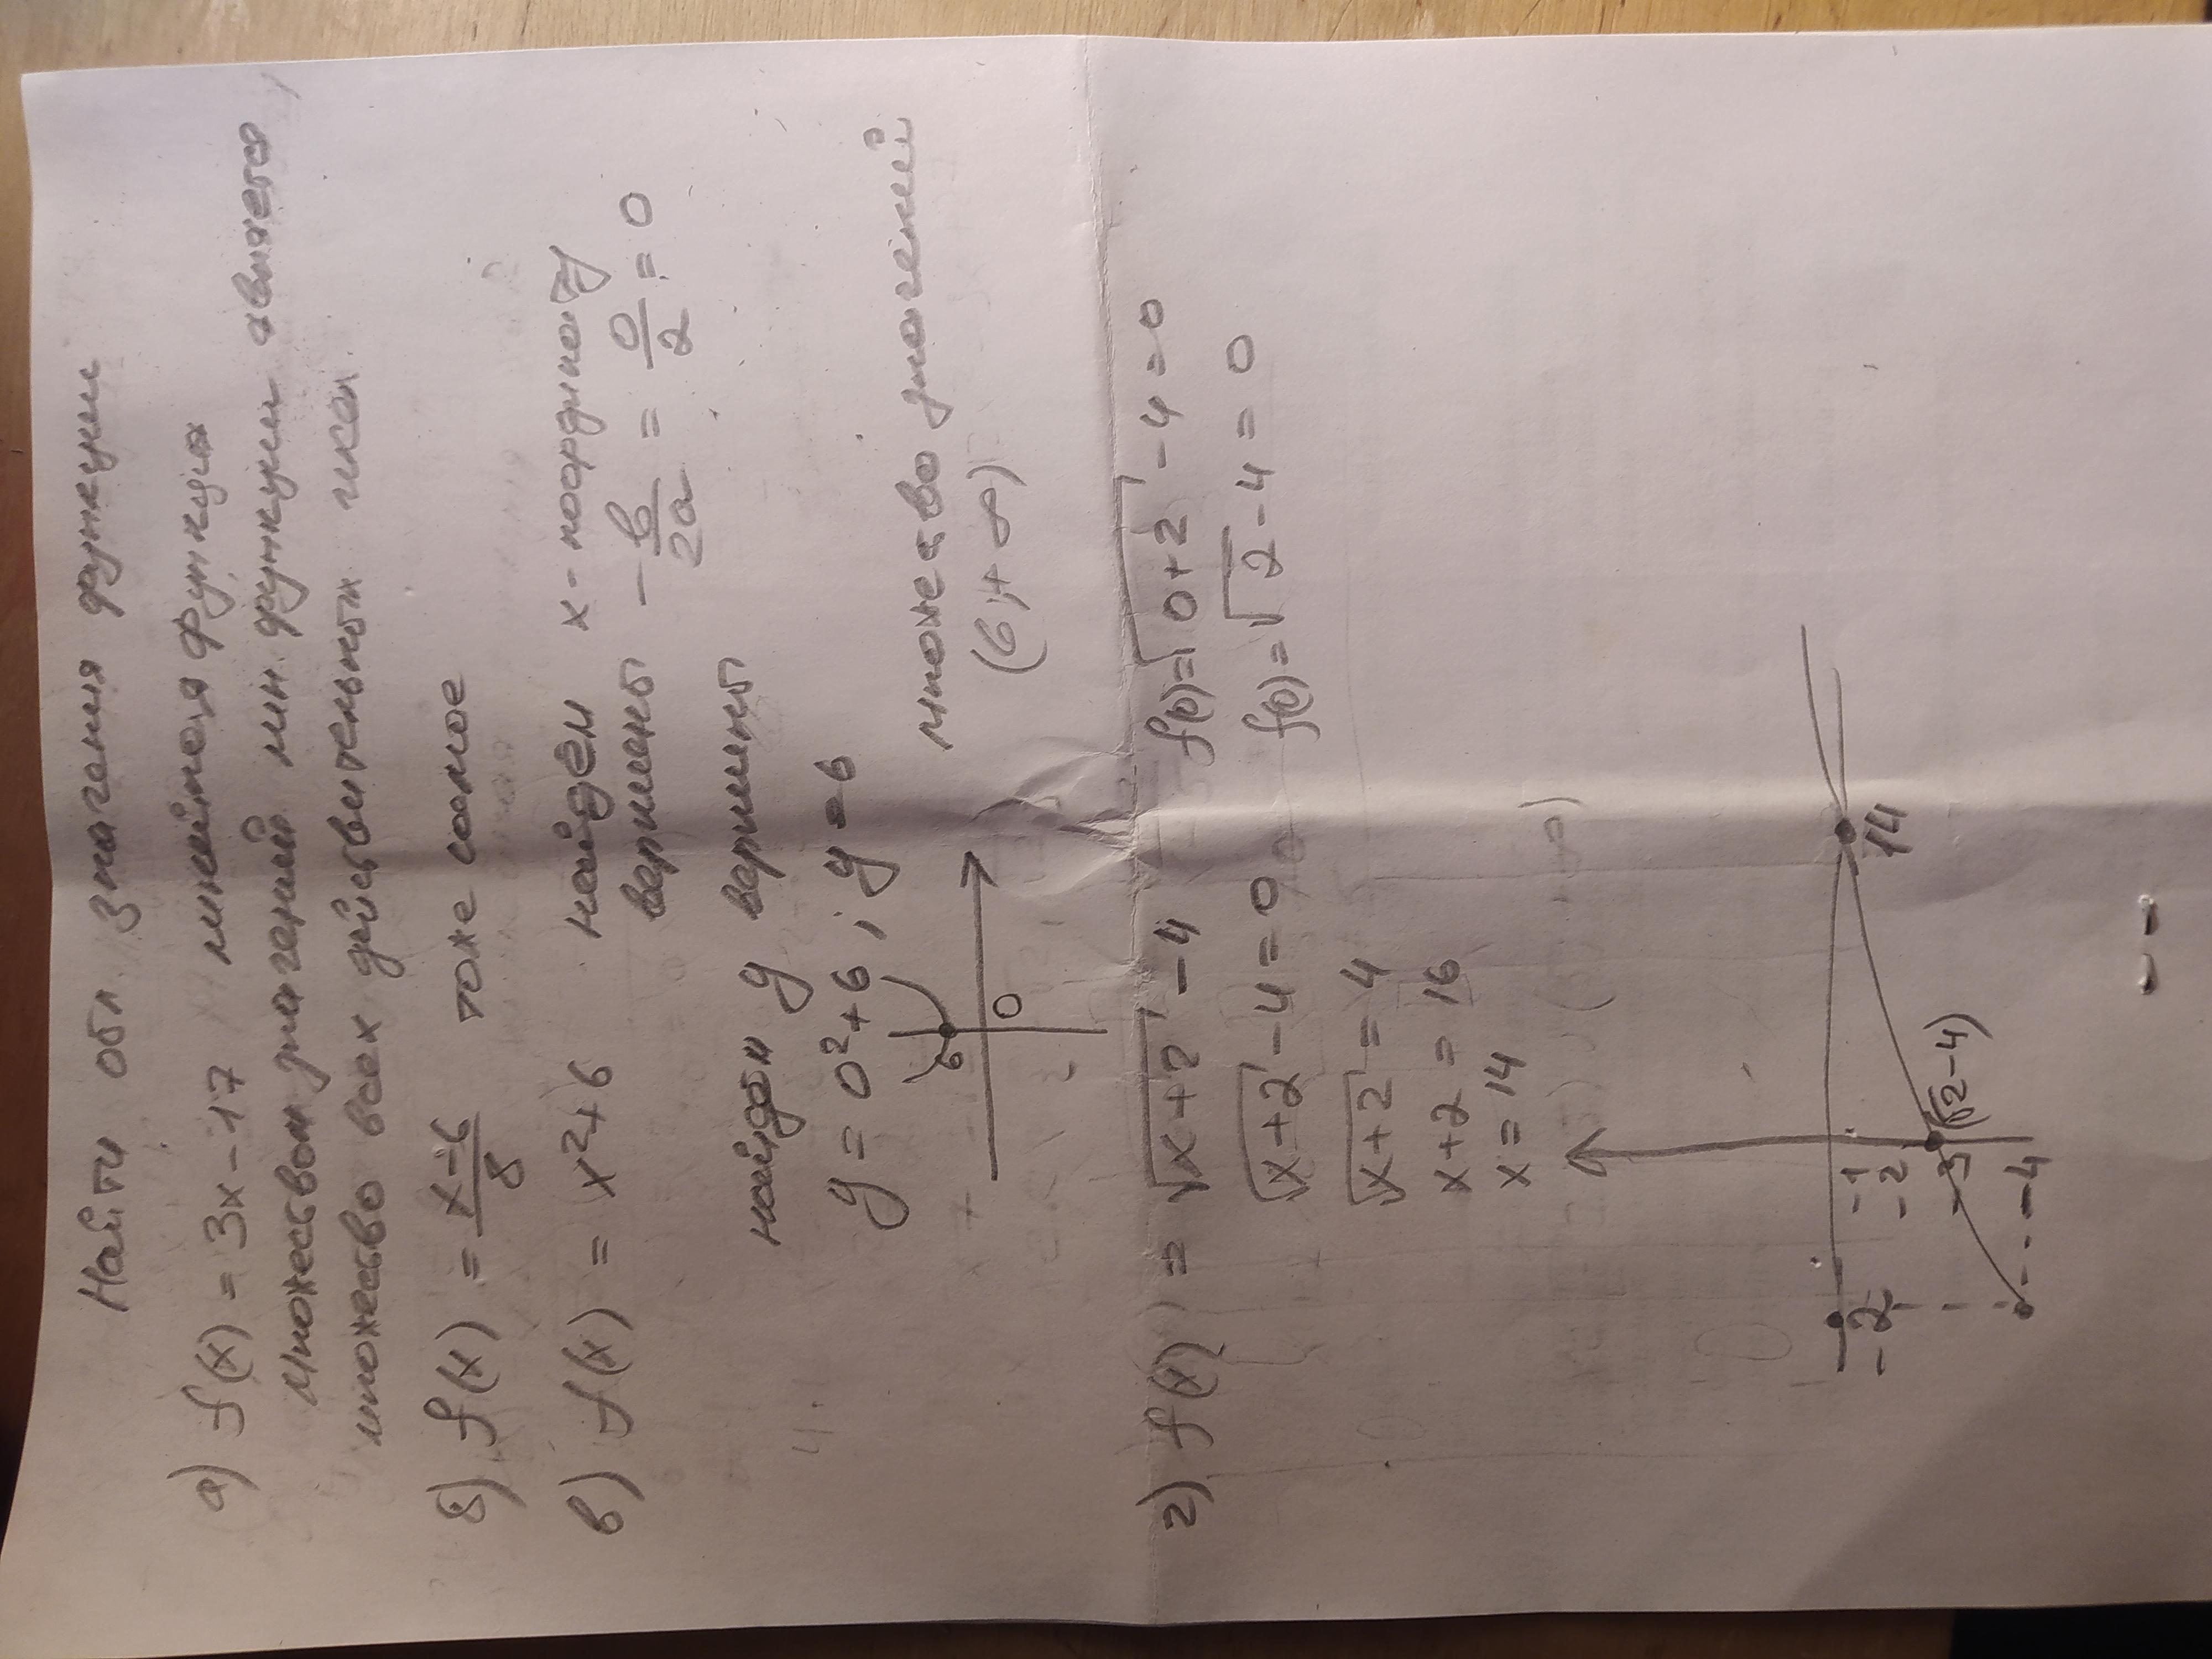 Найти обл. значения функции
а) f(x) = 3x - 17 линейная функция
множеством значений лин. функции является
множество всех действительных чисел.
б) f(x) = x-6/8 тоже самое
в) f(x) = x²+6 найдём x - координату
вершины - b/2a = 0/2 = 0
найдем y вершины
y = 0²+6 ; y = 6
6
0
множество значений
(6;+∞)
г) f(x) = √x+2 - 4 f(0)=√0+2 - 4 = 0
√x+2 - 4 = 0 f(0)=√2 - 4 = 0
√x+2 = 4
x+2 = 16
x = 14
-2 -1 14
-2
-3 (√2-4)
-4